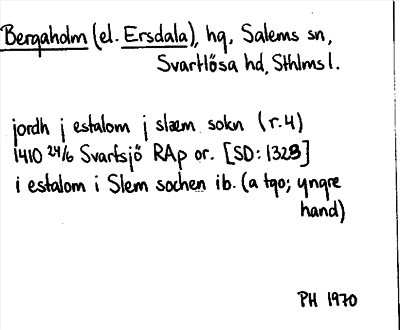 Bergaholm (el. Ersdala), hg, Salems sn,
Svartlösa hd, Sthlms l.
jordh j estalom j slæm sokn (r. 4)
1410 24/6 Svartsjö RAp or. [SD: 1323]
i estalom i Slem sochen ib. (a tgo; yngre
hand)
PH 1970